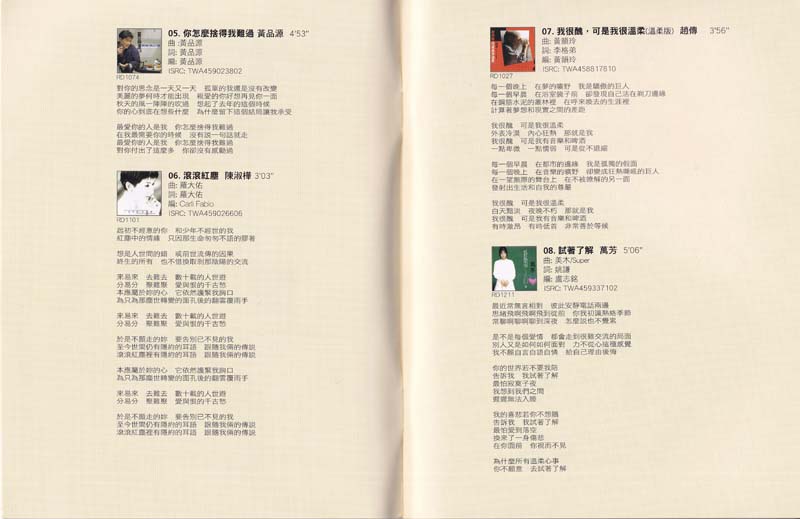 05. 你怎麼捨得我難過 黃品源 4'53"
曲:黃品源
詞:黃品源
編:黃品源
ISRC: TWA459023802
RD1074
對你的思念是一天又一天 孤單的我還是沒有改變
美麗的夢何時才能出現 親愛的你好想再見你一面
秋天的風一陣陣的吹過 想起了去年的這個時候
你的心到底在想些什麼 為什麼留下這個結局讓我承受
最愛你的人是我 你怎麼捨得我難過
在我最需要你的時候 沒有說一句話就走
最愛你的人是我 你怎麼捨得我難過
對你付出了這麼多 你卻沒有感動過
06. 滾滾紅塵 陳淑樺 3'03"
曲: 羅大佑
詞: 羅大佑
編: Carli Fabio
ISRC: TWA459026606
RD1101
起初不經意的你 和少年不經世的我
紅塵中的情緣 只因那生命匆匆不語的膠著
想是人世間的錯 或前世流傳的因果
終生的所有 也不惜換取剎那陰陽的交流
來易來 去難去 數十載的人世遊
分易分 聚難聚 愛與恨的千古愁
本應屬於妳的心 它依然護緊我胸口
為只為那塵世轉變的面孔後的翻雲覆雨手
來易來 去難去 數十載的人世遊
分易分 聚難聚 愛與恨的千古愁
於是不願走的妳 要告別已不見的我
至今世間仍有隱約的耳語 跟隨我倆的傳說
滾滾紅塵裡有隱約的耳語 跟隨我倆的傳說
本應屬於妳的心 它依然護緊我胸口
為只為那塵世轉變的面孔後的翻雲覆雨手
來易來 去難去 數十載的人世遊
分易分 聚難聚 愛與恨的千古愁
於是不願走的妳 要告別已不見的我
至今世間仍有隱約的耳語 跟隨我倆的傳說
滾滾紅塵裡有隱約的耳語 跟隨我倆的傳說
07. 我很醜,可是我很溫柔(溫柔版) 趙傳 3'56"
曲: 黃韻玲
詞: 李格弟
編: 黃韻玲
ISRC: TWA458817810
RD1027
每一個晚上 在夢的曠野 我是驕傲的巨人
每一個早晨 在浴室鏡子前 卻發現自己活在剃刀邊緣
在鋼筋水泥的叢林裡 在呼來喚去的生涯裡
計算著夢想和現實之間的差距
我很醜 可是我很溫柔
外表冷漠 內心狂熱 那就是我
我很醜 可是我有音樂和啤酒
一點卑微 一點懦弱 可是從不退縮
每一個早晨 在都市的邊緣 我是孤獨的假面
每一個晚上 在音樂的曠野 卻變成狂熱嘶吼的巨人
在一望無際的舞台上 在不被瞭解的另一面
發射出生活和自我的尊嚴
我很醜 可是我很溫柔
白天黯淡 夜晚不朽 那就是我
我很醜 可是我有音樂和啤酒
有時激昂 有時低首 非常善於等候
08. 試著了解 萬芳 5'06"
曲: 美木/Super
詞: 姚謙
編: 盧志銘
ISRC: TWA459337102
RD1211
最近常無言相對 彼此安靜電話兩邊
思緒飛啊飛啊飛到從前 你我初識熱絡季節
常聊啊聊啊聊到深夜 怎麼說也不覺累
是不是每個愛情 都會走到很難交流的局面
別人又是如何如何面對 力不從心這種感覺
我不願自言自語自情 給自己理由後悔
你的世界若不要我陪
告訴我 我試著了解
最怕寂寞子夜
我想到我們之間
輾轉無法入睡
我的喜悲若你不想聽
告訴我 我試著了解
最怕愛到落空
換來了一身傷悲
在你面前 你視而不見
為什麼所有溫柔心事
你不願意 去試著了解